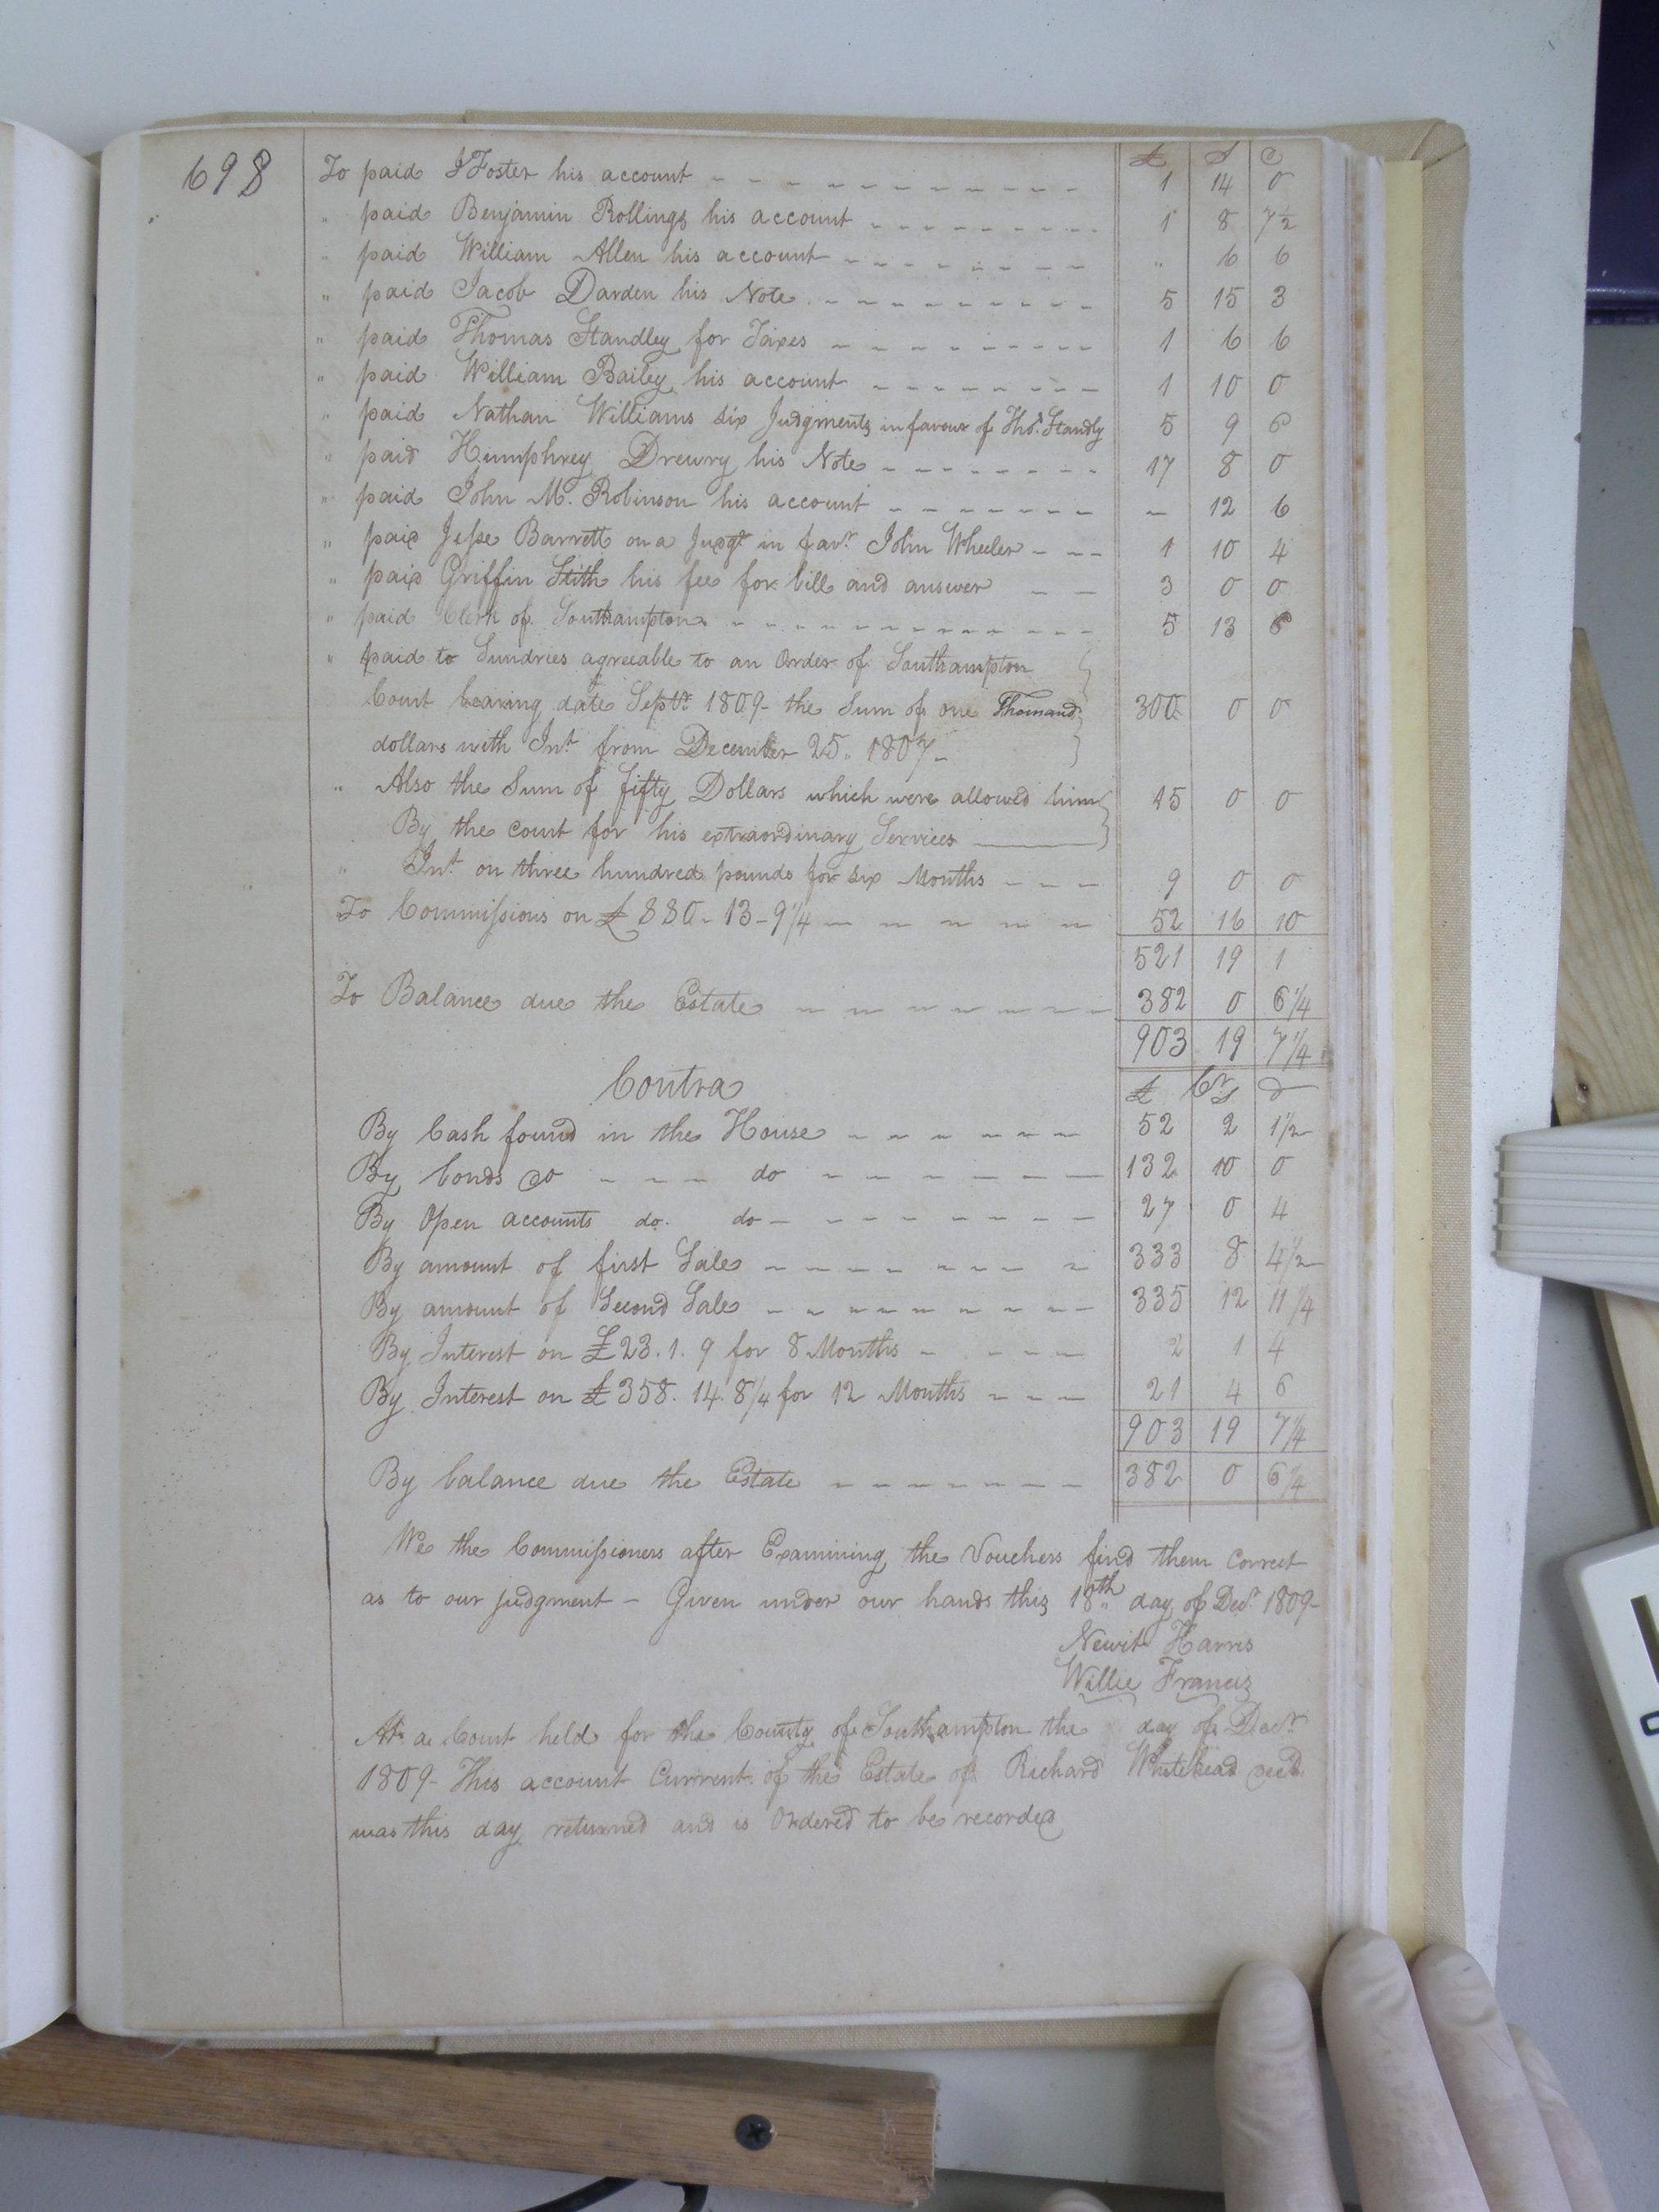 698
£ S D
To paid J Foster his account 1 14 0
" paid Benjamin Rollings his account 1 8 7½
" paid William Allen his account " 6 6
" paid Jacob Darden his Note 5 15 3
" paid Thomas Standley for Taxes 1 6 6
" paid William Bailey his account 1 10 0
" paid Nathan Williams six Judgments in favour of Thos. Standly 5 9 6
" paid Humphrey Drewry his Note 17 8 0
" paid John M. Robinson his account – 12 6
" paid Jesse Barrett on a Judgt in favr John Wheeler 1 10 4
" paid Griffin Stith his fee for bill and answer 3 0 0
" paid Clerk of Southampton 5 13 6
" paid to Sundries agreeable to an Order of Southampton
Court bearing date Septr 1809 – the Sum of one Thousand 300 0 0
dollars with Int from December 25. 1807 –
" Also the Sum of fifty Dollars which were allowed him 15 0 0
By the court for his extraordinary Services
" Int on three hundred pounds for six Months 9 0 0
To Commissions on £880 – 13 – 9¼ 52 16 10
521 19 1
To Balance due the Estate 382 0 6¼
903 19 7¼
Contra £ Cr S D
By Cash found in the House 52 2 1½
By bonds do do 132 10 0
By Open accounts do. do 27 0 4
By amount of first Sale 333 8 4½
By amount of Second Sale 335 12 11¼
By Interest on £23. 1. 9 for 8 Months 2 1 4
By Interest on £358. 14. 8¼ for 12 Months 21 4 6
903 19 7¼
By balance due the Estate 382 0 6¼
We the Commissioners after Examining the Vouchers find them correct
as to our judgment – Given under our hands this 18th day of Decr 1809 –
Newit Harris
Willie Francis
At a Court held for the County of Southampton the day of Decr
1809 – This account Current of the Estate of Richard Whitehead decd
was this day returned and is Ordered to be recorded